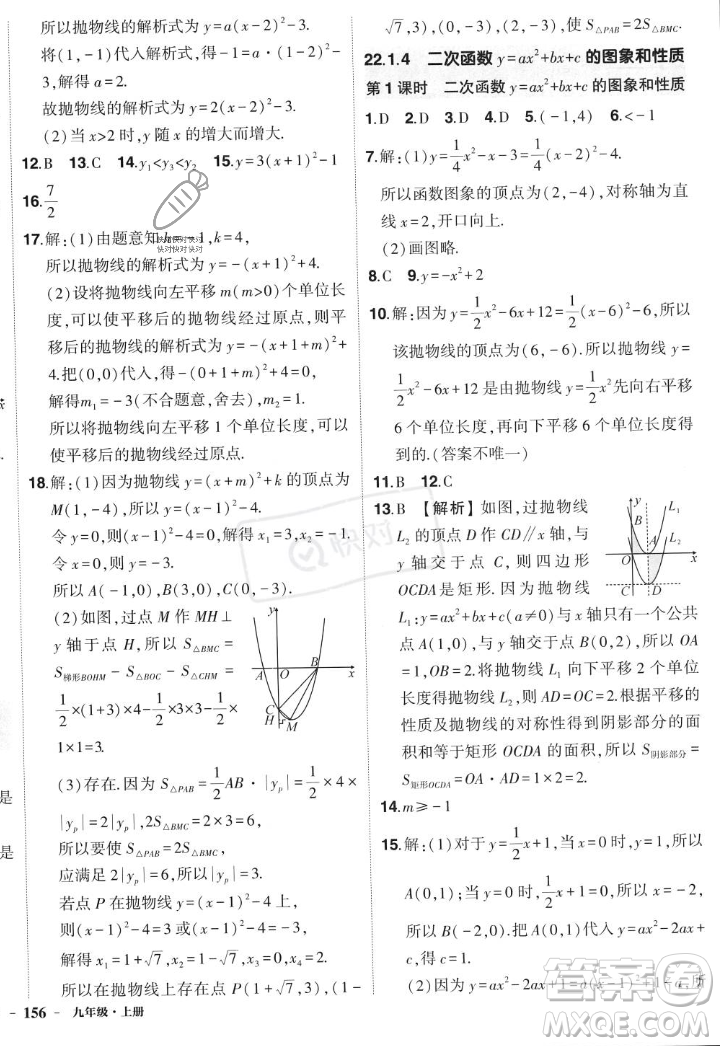 所以抛物线的解析式为 y=a(x-2)².
将(1,-1)代入解析式,得-1=a·(1-2)².
解得 a=2.
故抛物线的解析式为 y=2(x-2)²-3.
(2)当 x>2 时,y 随 x 的增大而增大.
12.B 13.C 14.y₁<y₃<y₂ 15.y=3(x+1)²-1
16. 7/2
17.解:(1)由题意知 h=-1,k=4,
所以抛物线的解析式为 y=-(x+1)²+4.
(2)设将抛物线向左平移 m(m>0)个单位长
度,可以使平移后的抛物线经过原点,则平
移后的抛物线的解析式为 y=-(x+1+m)²+
4.把(0,0)代入,得-(0+1+m)²+4=0.
解得 m₁=-3(不合题意,舍去),m₂=1.
所以将抛物线向左平移 1 个单位长度,可以
使平移后的抛物线经过原点.
18.解:(1)因为抛物线 y=(x+h)²+k 的顶点为
M(1,-4),所以 y=(x-1)²-4.
令 y=0,则(x-1)²-4=0.解得 x₁=-1,x₂=3.
令 x=0,则 y=(0-1)²-4=-3.
所以 A(-1,0),B(3,0),C(0,-3).
(2)如图,过点 M 作 MH⊥
y 轴于点 H,所以 S△BMC=
S梯形BOHM-S△BOC-S△CHM=
1/2×(1+3)×4-1/2×3×3-1/2×
1×1=3.
(3)存在.因为 S△PAB=1/2AB·|yₚ|=1/2×4×
|yₚ|=2|yₚ|,2S△BMC=2×3=6,
所以要使 S△PAB=2S△BMC,
应满足 2|yₚ|=6,则|yₚ|=3.
若点 P 在抛物线 y=(x-1)²-4 上,
则(x-1)²-4=3或(x-1)²-4=-3.
解得 x₁=1+√7,x₂=1-√7,x₃=2,x₄=0.
所以在抛物线上存在点 P(1+√7,3)或(1-
156 九年级·上册
√7,3)或(0,-3)或(2,-3),使 S△PAB=2S△BMC.
22.1.4 二次函数 y=ax²+bx+c 的图象和性质
第 1 课时 二次函数 y=ax²+bx+c 的图象和性质
1.D 2.D 3.D 4.D 5.(-1,4) 6.>
7.解:(1)y=1/4x²-x-3=1/4(x-2)²-4.
所以函数图象的顶点为(2,-4),对称轴为直
线 x=2,开口向上.
(2)画图略.
8.C 9.y=-x²+2
10.解:因为 y=1/2x²-6x+12=1/2(x-6)²-6,所以
该抛物线的顶点为(6,-6).所以抛物线 y=
1/2x²-6x+12 是由抛物线 y=1/2x²先向右平移
6 个单位长度,再向下平移 6 个单位长度得
到的.(答案不唯一)
11.B 12.C
13.B 【解析】如图,过抛物线
L₂ 的顶点 D 作 CD∥x 轴,与
y 轴交于点 C,则四边形
OCDA 是矩形.因为抛物线
L₁:y=ax²+bx+c(a≠0)与 x 轴只有一个公共
点 A(1,0),与 y 轴交于点 B(0,2),所以 OA
=1,OB=2.因为将抛物线 L₁ 向下平移 2 个单位
长度得抛物线 L₂,则 AD=OC=2.根据平移的
性质及抛物线的对称性得到阴影部分的面
积等于矩形 OCDA 的面积,所以 S阴影部分=
S矩形OCDA=OA·AD=1×2=2.
14.m≥-1
15.解:(1)对于 y=1/2x+1,当 x=0 时,y=1,则
A(0,1);当 y=0 时,1/2x+1=0,解得 x=-2,
所以 B(-2,0).把 A(0,1)代入 y=ax²-2ax+c,
得 c=1.
(2)因为 y=ax²-2ax+1=a(x-1)²+1-a,所